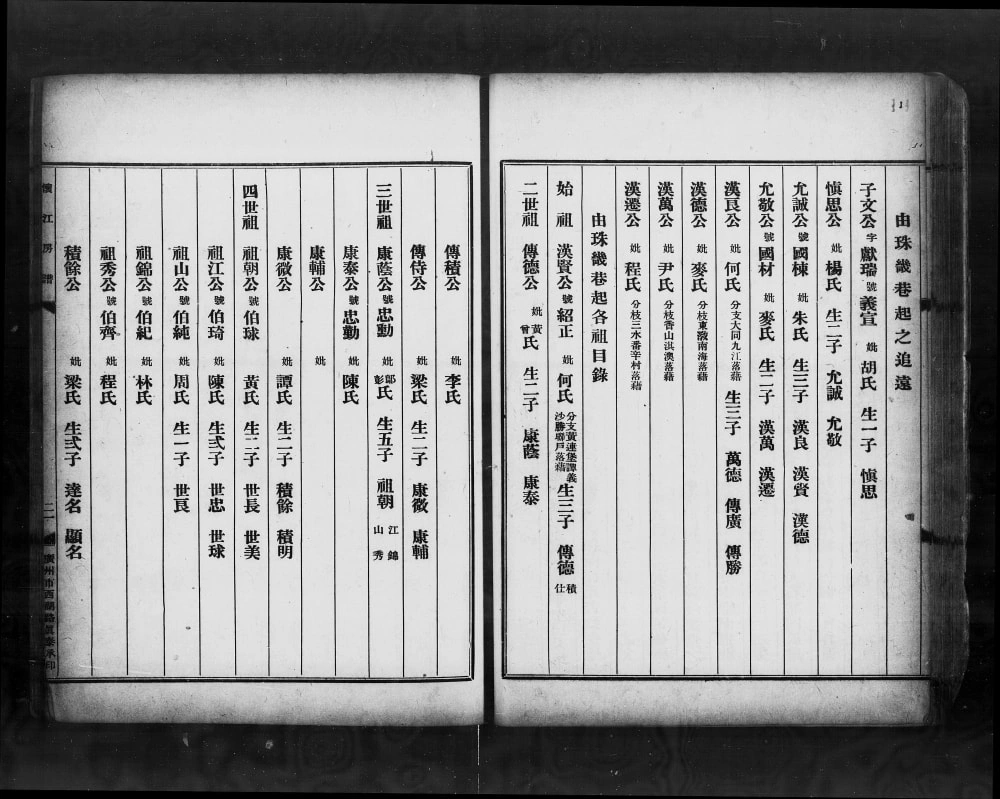 由珠畿巷起之追遠
子文公字獻瑞號義宣 妣 胡氏 生一子 愼思
愼思公 妣 楊氏 生二子 允誠 允敬
允誠公 號國棟 妣 朱氏 生三子 漢良 漢賢 漢德
允敬公 號國材 妣 麥氏 生二子 漢萬 漢遷
漢良公 妣 何氏 分支大同九江落藉 生三子 萬德 傳廣 傳勝
漢德公 妣 麥氏 分枝東滘南海落藉
漢萬公 妣 尹氏 分枝香山淇澳落藉
漢遷公 妣 程氏 分枝三水番辛村落藉
由珠畿巷起各祖目錄
始祖 漢賢公 號紹正 妣 何氏 分支黃連堡譚義沙勝聯戶落藉 生三子 傳德 積 仕
二世祖 傳德公 妣 黃曾氏 生二子 康蔭 康泰
傳積公 妣 李氏
傳侍公 妣 梁氏 生二子 康微 康輔
三世祖 康蔭公 號忠勳 妣 鄔彭氏 生五子 祖朝 江 錦 山 秀
康泰公 號忠勤 妣 陳氏
康輔公 妣
康微公 妣 譚氏 生二子 積餘 積明
四世祖 祖朝公 號伯球 妣 黃氏 生二子 世長 世美
祖江公 號伯琦 妣 陳氏 生弍子 世忠 世球
祖山公 號伯純 妣 周氏 生一子 世良
祖錦公 號伯紀 妣 林氏
祖秀公 號伯齊 妣 程氏
積餘公 妣 梁氏 生弍子 達名 顯名
江房譜 二 廣州市西湖路 承印